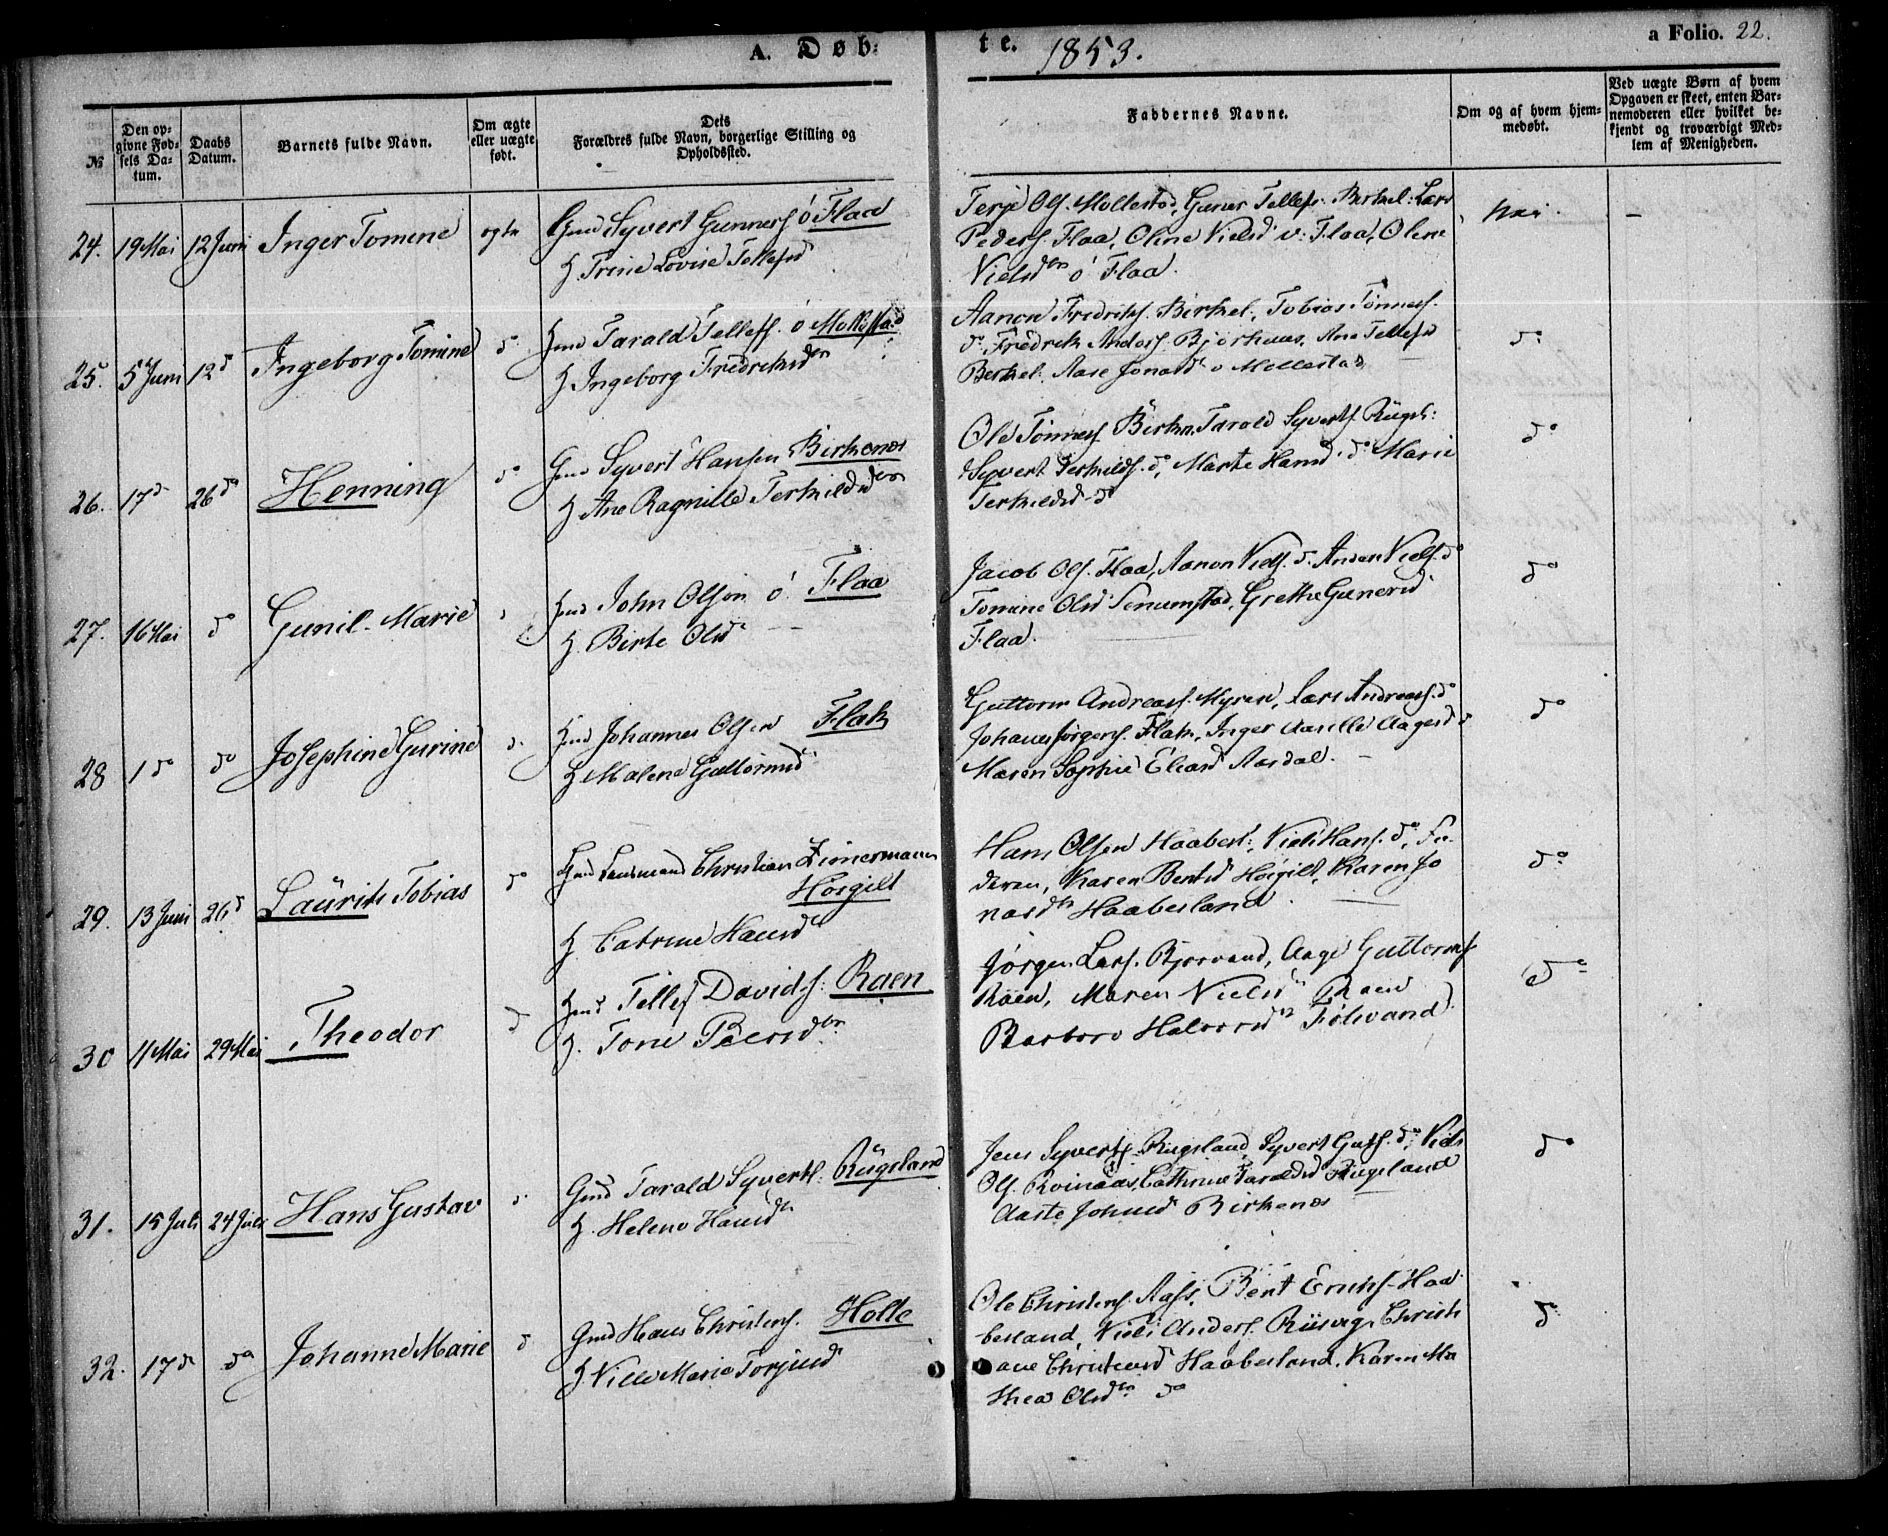 A. Døb- te. 1853. a Folio. 22.
№
Den op-
givne Fød-
sels Da-
tum.
Daabs
Datum.
Barnets fulde Navn.
Om ægte
eller uægte
født.
Dets
Forældres fulde Navn, borgerlige Stilling og
Opholdssted.
Faddernes Navne.
Om og af hvem hjem-
medøbt.
Ved uægte Børn af hvem
Opgaven er skeet, enten Bar-
nemoderen eller hvilket be-
kjendt og troværdigt Med-
lem af Menigheden.
24. 19 Mai 12 Juni Inger Tomine ægte
Gmd Syvert Gunners ó Flaa
H Trine Lovise Tellefsd
Terje Ols. Mollestad, Guner Tellefs. Birkel: Lars
Peders Flaa, Oline Nielsd v: Flaa, Olene
Nielsdtr ó Flaa.
Nei. –
25. 5 Juni 12 do Ingeborg Tomine do
Gmd Tarald Tellefs. ó Mollestad
H Ingeborg Fredriksdtr
Aanon Fredriks. Birkel, Tobias Tønness.
do. Fredrik Anders. Bjorhuus, Ane Tellefsd
Berkel. Aase Jonasd o Mollestad,
do
26. 17 do 26 do Henning do
Gmd Syvert Hansen Birkenes
H Ane Ragnille Terkildsdtr
Ole Tønness. Birkn. Tarald Syverts Rügsl:
Syvert Terkilds. do, Marte Hansd. do Marie
Terkildsd do
do
27. 16 Mai do Gunil Marie
Gmd John Olsen ó Flaa
H. Birte Olsd
Jacob Ols. Flaa, Aanon Niels. do. Anders Niels. do
Tomine Olsd Senumstad, Grethe Gunersd
Flaa.
do
28 1 do do Josephine Gurine do
Gmd Johannes Olsen Flak
H Malene Guttormsd
Guttorm Andreass. Myren, Lars Andreass. do
Johanes Jørgens. Flak, Inger Aasille Aagesd do
Maren Sophie Eliasd Aasdal.
do
29. 13 Juni 26 do Laürits Tobias do
Gmd Lensmand Christian Zimermann
Høigilt
H. Catrine Hansd
Hans Olsen Haabesl., Niels Hans. do, Fa-
deren, Karen Bentsd Høigilt, Karen Jo
nasdtr Haabesland.
do
30 11 Mai 29 Mai Theodor do
Gmd Tellef Davids: Raen
H. Tone Peersdtr
Jørgen Lars. Bjorvand, Aage Guttorms
Raen, Maren Nielsd Raen
Barbro Halvorsd Følvand
do
31. 15 Juli 24 Juli Hans Gustav
Gmd Tarald Syverts: Rügsland
H. Helene Hansdtr
Jens Syverts Rugsland, Syvert Guts. do, Niels
Ols. Roinaas, Cathrine Taraldsd Rugsland
Aaste Johnsd Birkenes
do
32. 17 do do Johanne Marie do
Gmd Hans Christens. Holte
H. Nille Marie Torjusd
Ole Christens. Aass, Bent Eriks Haa-
besland, Niels Anders. Riisvig, Christi
ane Christensd Haabesland, Karen Ma
thea Olsdtr do
do